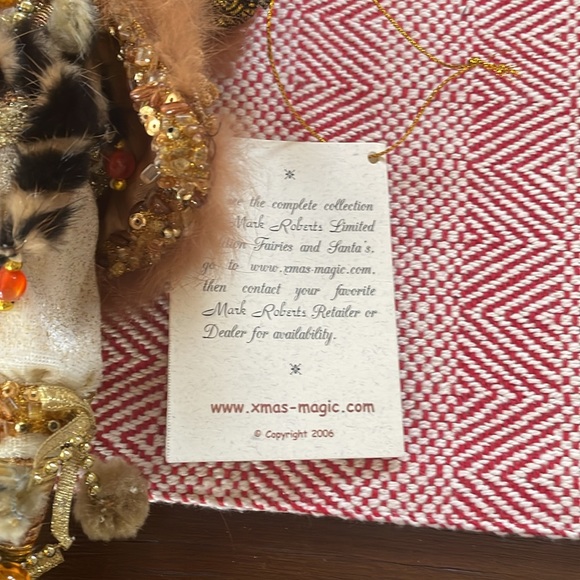 the complete collection
Mark Roberts Limited
Fairies and Santa's,
go to www.xmas-magic.com.
then contact your favorite
Mark Roberts Retailer or
Dealer for availability.
www.xmas-magic.com
© Copyright 2006